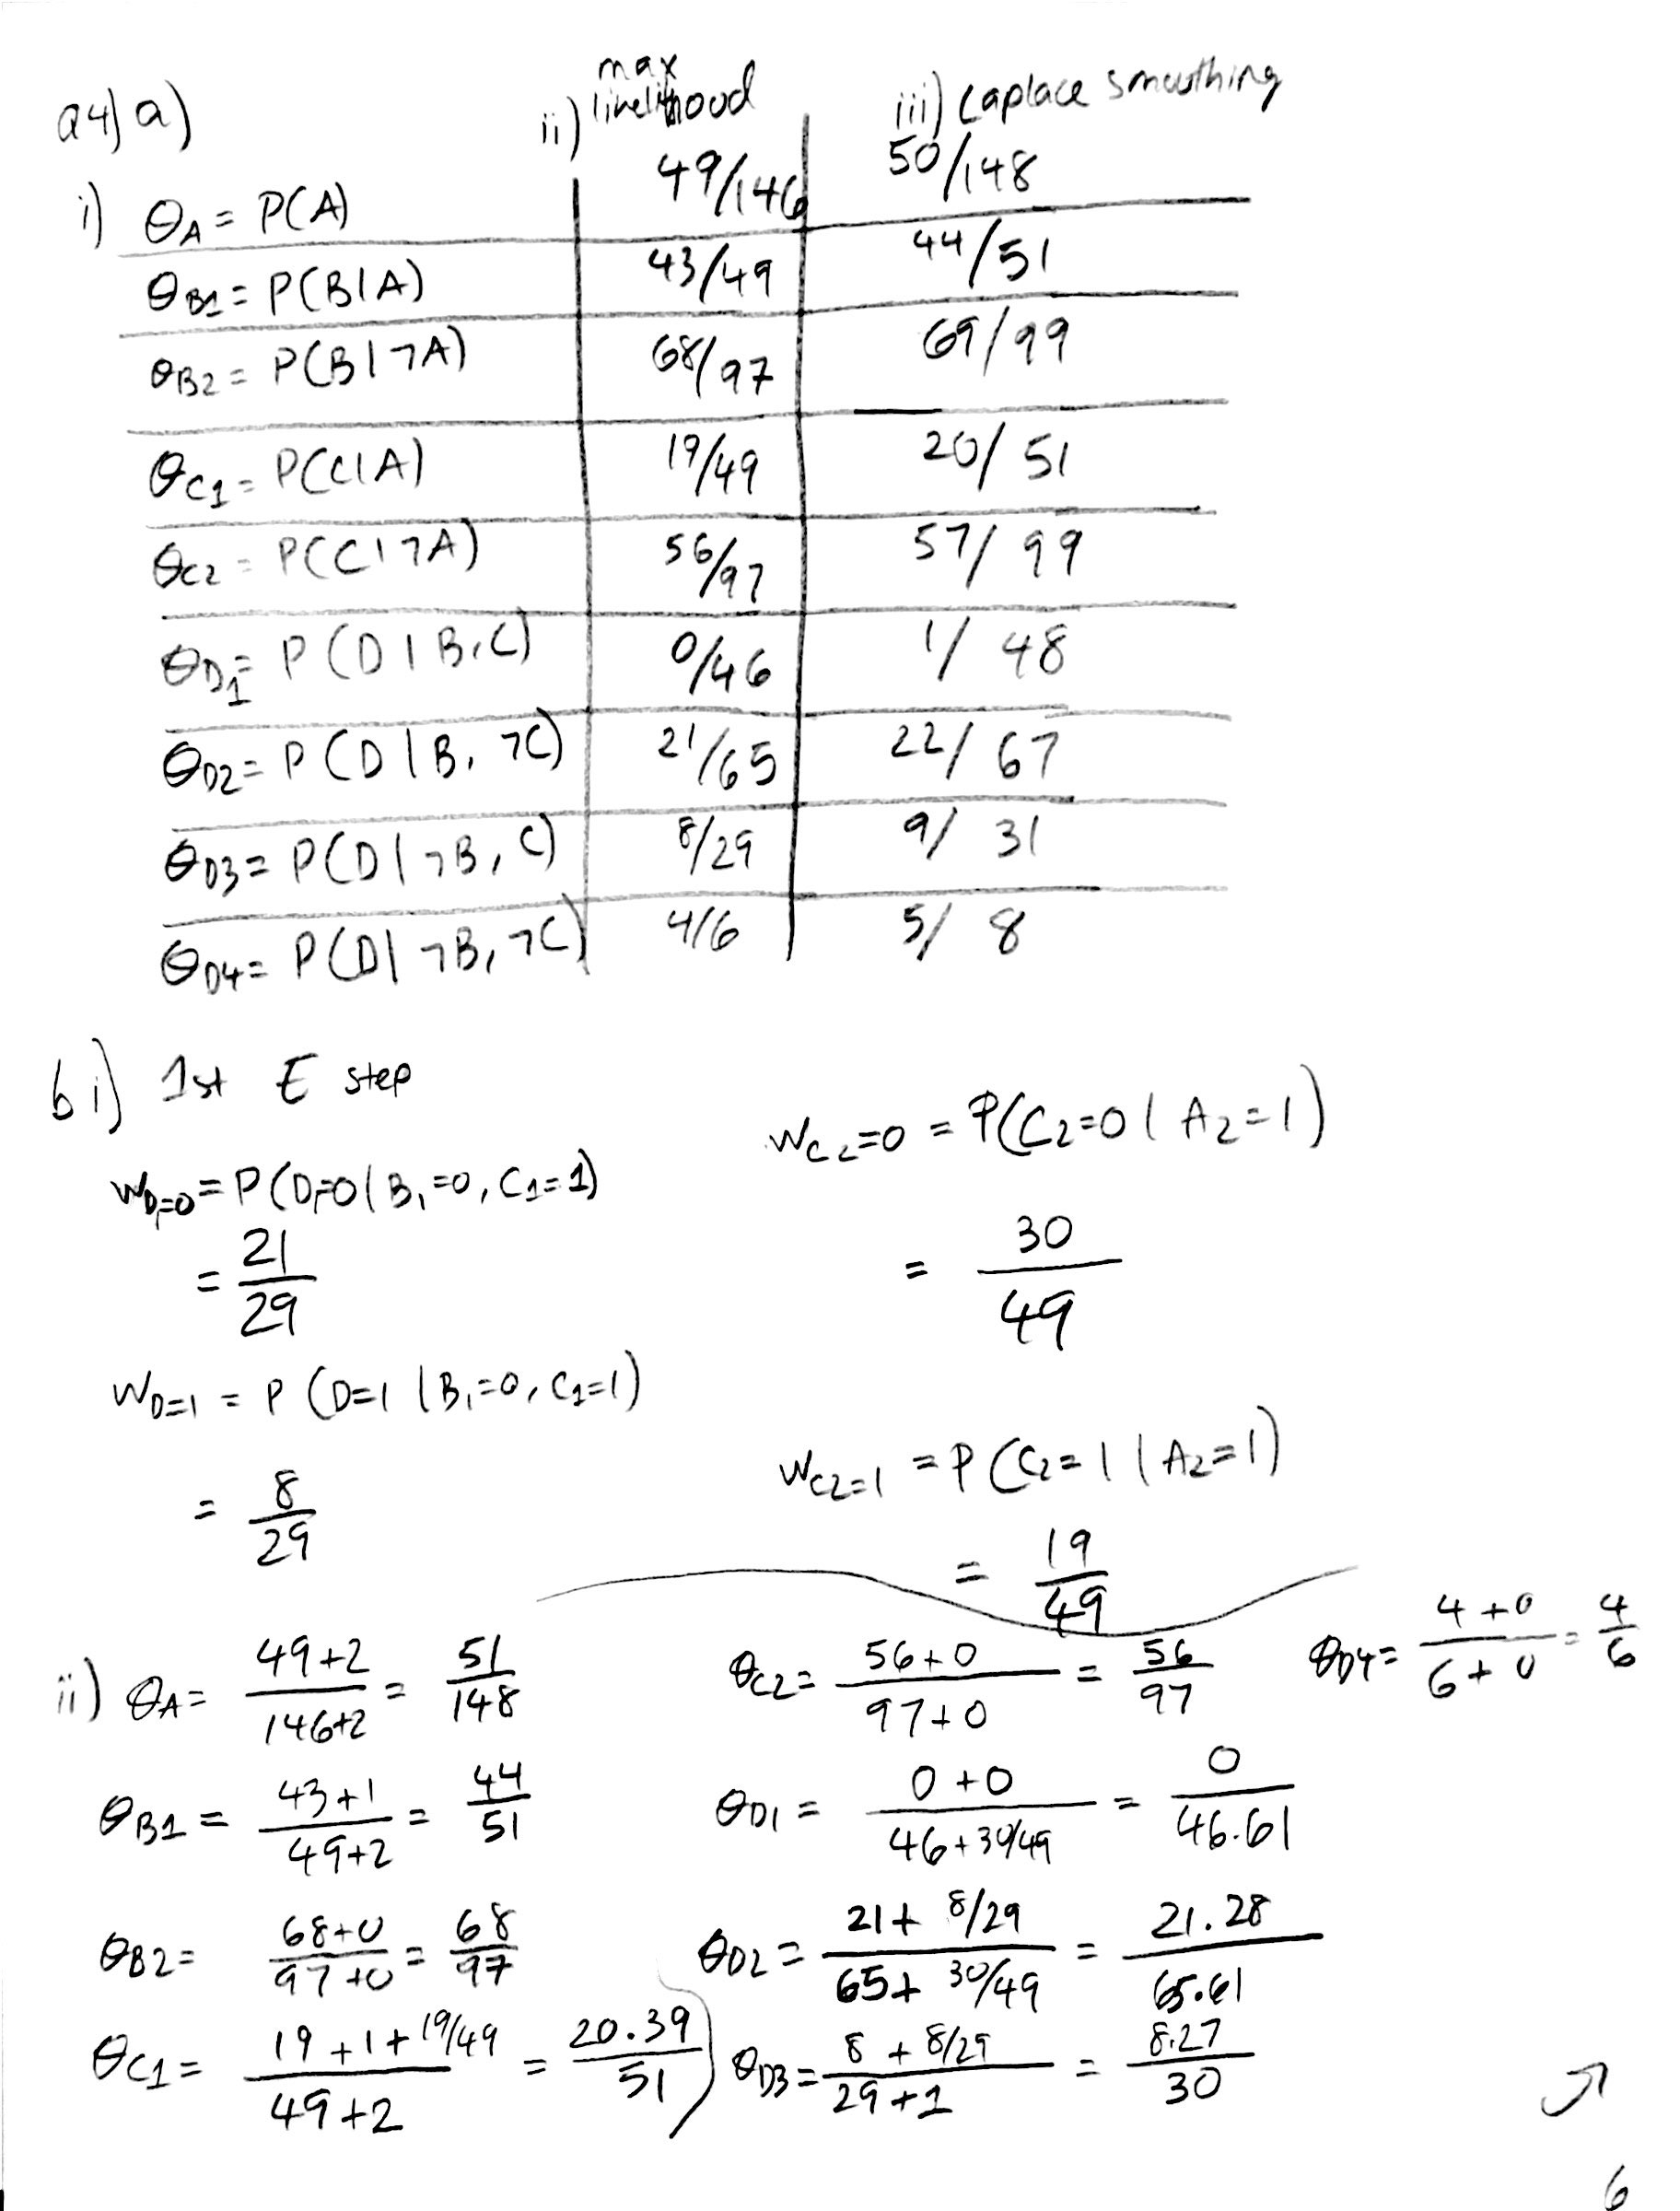 Q4) a)
ii) max likelihood
iii) Laplace smoothing
i) θA = P(A) 49/146 50/148
θB1 = P(B|A) 43/49 44/51
θB2 = P(B|¬A) 68/97 69/99
θC1 = P(C|A) 19/49 20/51
θC2 = P(C|¬A) 56/97 57/99
θD1 = P(D|B,C) 0/46 1/48
θD2 = P(D|B,¬C) 21/65 22/67
θD3 = P(D|¬B,C) 8/29 9/31
θD4 = P(D|¬B,¬C) 4/6 5/8
b i) 1st E step
WD1=0 = P(D1=0|B1=0, C1=1)
= 21/29
WD=1 = P(D=1|B1=0, C1=1)
= 8/29
WC2=0 = P(C2=0|A2=1)
= 30/49
WC2=1 = P(C2=1|A2=1)
= 19/49
ii) θA = 49+2/146+2 = 51/148
θB1 = 43+1/49+2 = 44/51
θB2 = 68+0/97+0 = 68/97
θC1 = 19+1+19/49/49+2 = 20.39/51
θC2 = 56+0/97+0 = 56/97
θD1 = 0+0/46+30/49 = 0/46.61
θD2 = 21+8/29/65+30/49 = 21.28/65.61
θD3 = 8+8/29/29+1 = 8.27/30
θD4 = 4+0/6+0 = 4/6
6